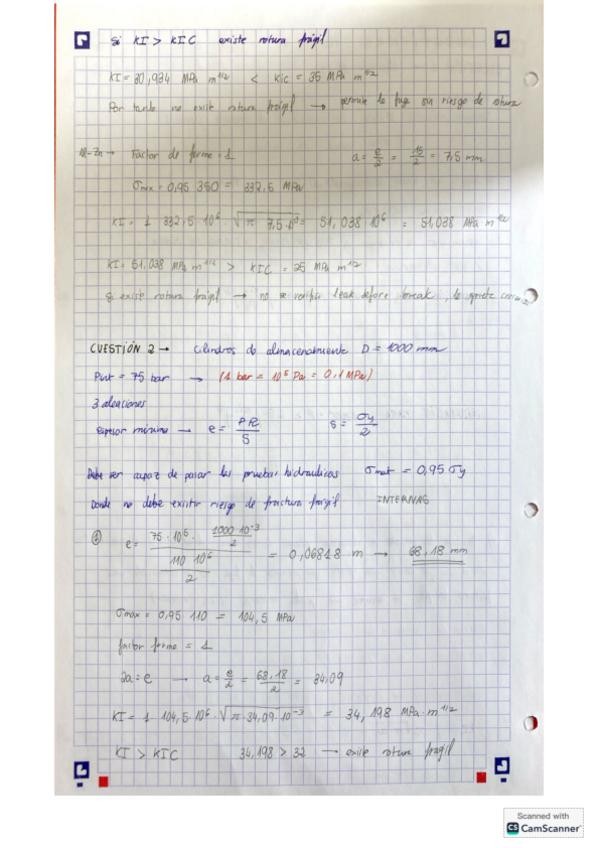 Si KI > KIC existe rotura frágil
KI = 30,934 MPa m^1/2 < KIC = 35 MPa m^1/2
Por tanto no existe rotura frágil → permite la fuga sin riesgo de rotura
Al-Zn → Factor de forma = 1 a = e/2 = 15/2 = 7,5 mm
σmax = 0,95 350 = 332,5 MPa
KI = 1 332,5 10^6 · √(π 7,5·10^-3) = 51,038 10^6 = 51,038 MPa m^1/2
KI = 51,038 MPa m^1/2 > KIC = 25 MPa m^1/2
Si existe rotura frágil → no se verifica leak before break, la grieta
CUESTIÓN 2 → Cilindros de almacenamiento D = 1000 mm
Pint = 75 bar → (1 bar = 10^5 Pa = 0,1 MPa)
3 aleaciones
Espesor mínimo → e = PR/S S = σy/2
Debe ser capaz de pasar las pruebas hidraulicas σmat = 0,95 σy
Donde no debe existir riesgo de fractura frágil INTERNAS
① e = (75·10^5 · 1000·10^-3/2) / (110 10^6/2) = 0,06818 m → 68,18 mm
σmax = 0,95 110 = 104,5 MPa
factor forma = 1
2a = e → a = e/2 = 68,18/2 = 34,09
KI = 1 104,5·10^6 · √(π·34,09·10^-3) = 34,198 MPa·m^1/2
KI > KIC 34,198 > 32 → existe rotura frágil
Scanned with
CS CamScanner